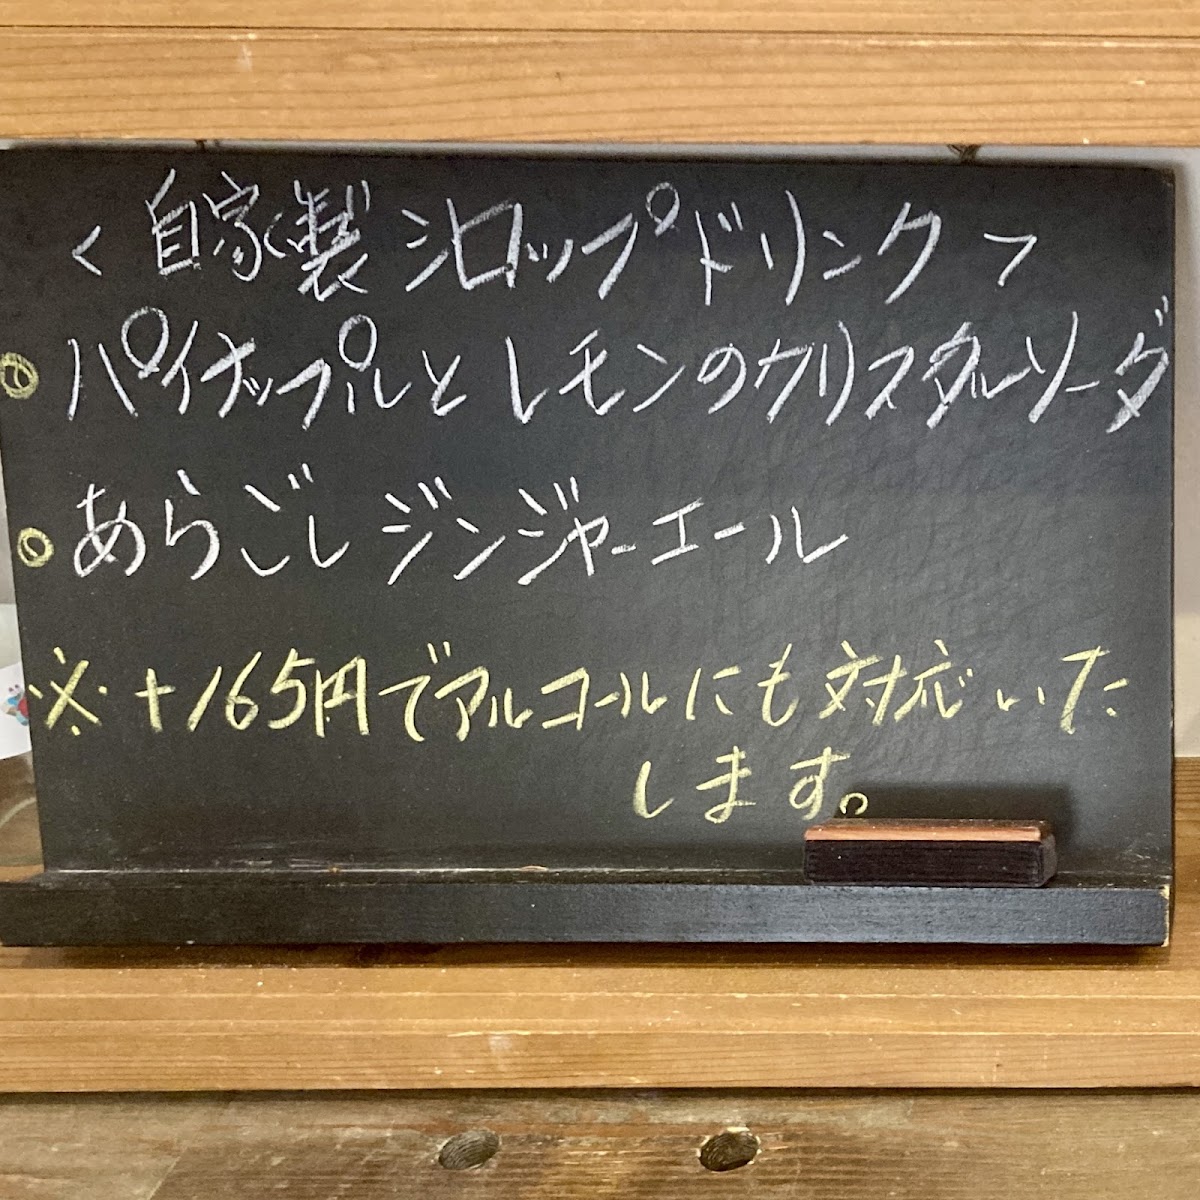 ＜自家製シロップドリンク＞
◎パイナップルとレモンのクリスタルソーダ
◎あらごしジンジャーエール
※+165円でアルコールにも対応いた
します。